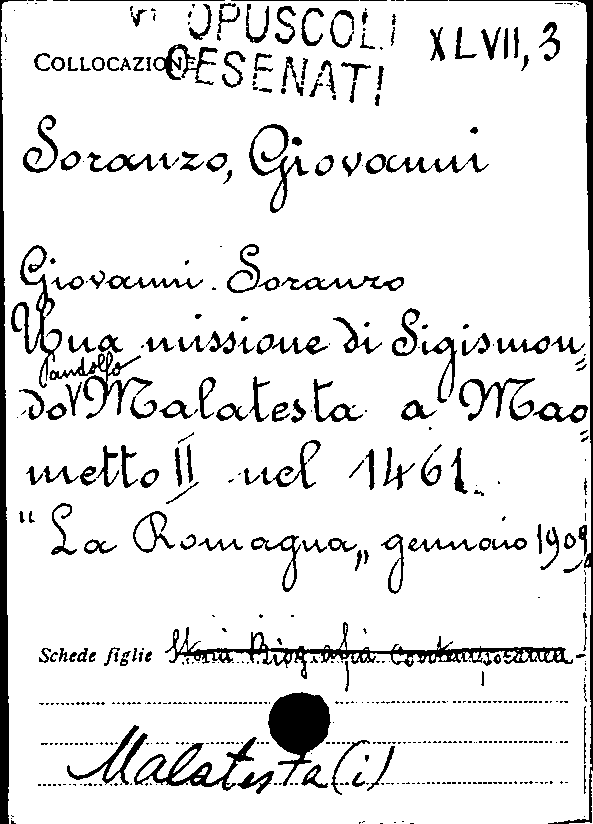 OPUSCOLI XLVII, 3
COLLOCAZIONE CESENATI
Soranzo, Giovanni
Giovanni Soranzo
Una missione di Sigismon=
Pandolfo
do Malatesta a Mao=
metto II nel 1461.
"La Romagna„ gennaio 1909
Schede figlie Storia Biografia contemporanea
Malatesta (i)